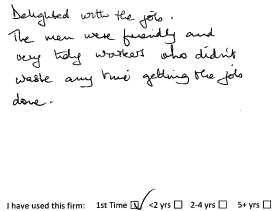 Delighted with the job.
The men were friendly and
very tidy workers who didn't
waste any time getting the job
done.
I have used this firm: 1st Time ☑ <2 yrs ☐ 2-4 yrs ☐ 5+ yrs ☐